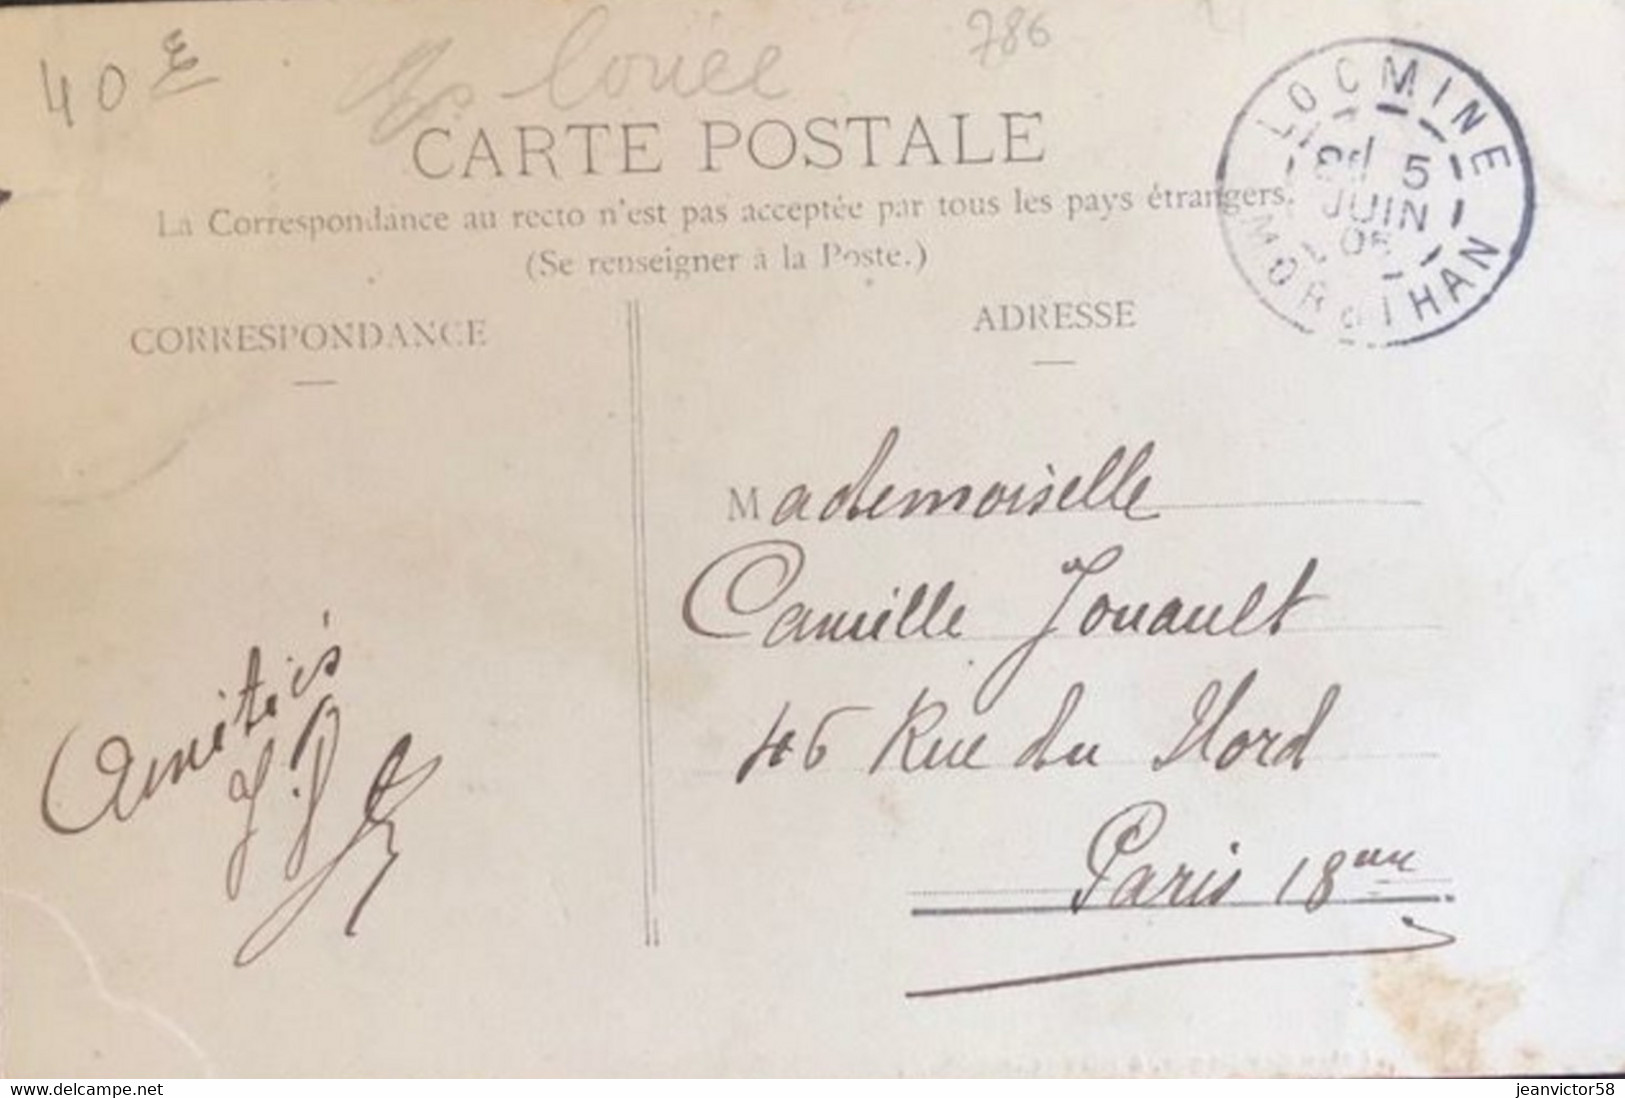 40 €
786
CARTE POSTALE
La Correspondance au recto n'est pas acceptée par tous les pays étrangers.
(Se renseigner à la Poste.)
LOCMINE
5
JUIN
MORBIHAN
CORRESPONDANCE
ADRESSE
Mademoiselle
Camille Jouault
46 Rue du Nord
Paris 18eme
Amitiés
delcampe.net
jeanvictor58